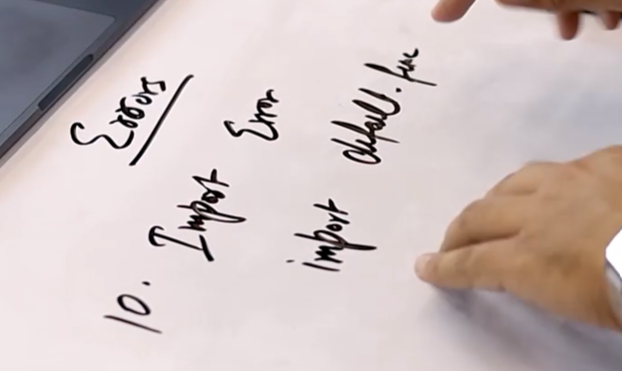 Errors
10. Import Error
import default.func